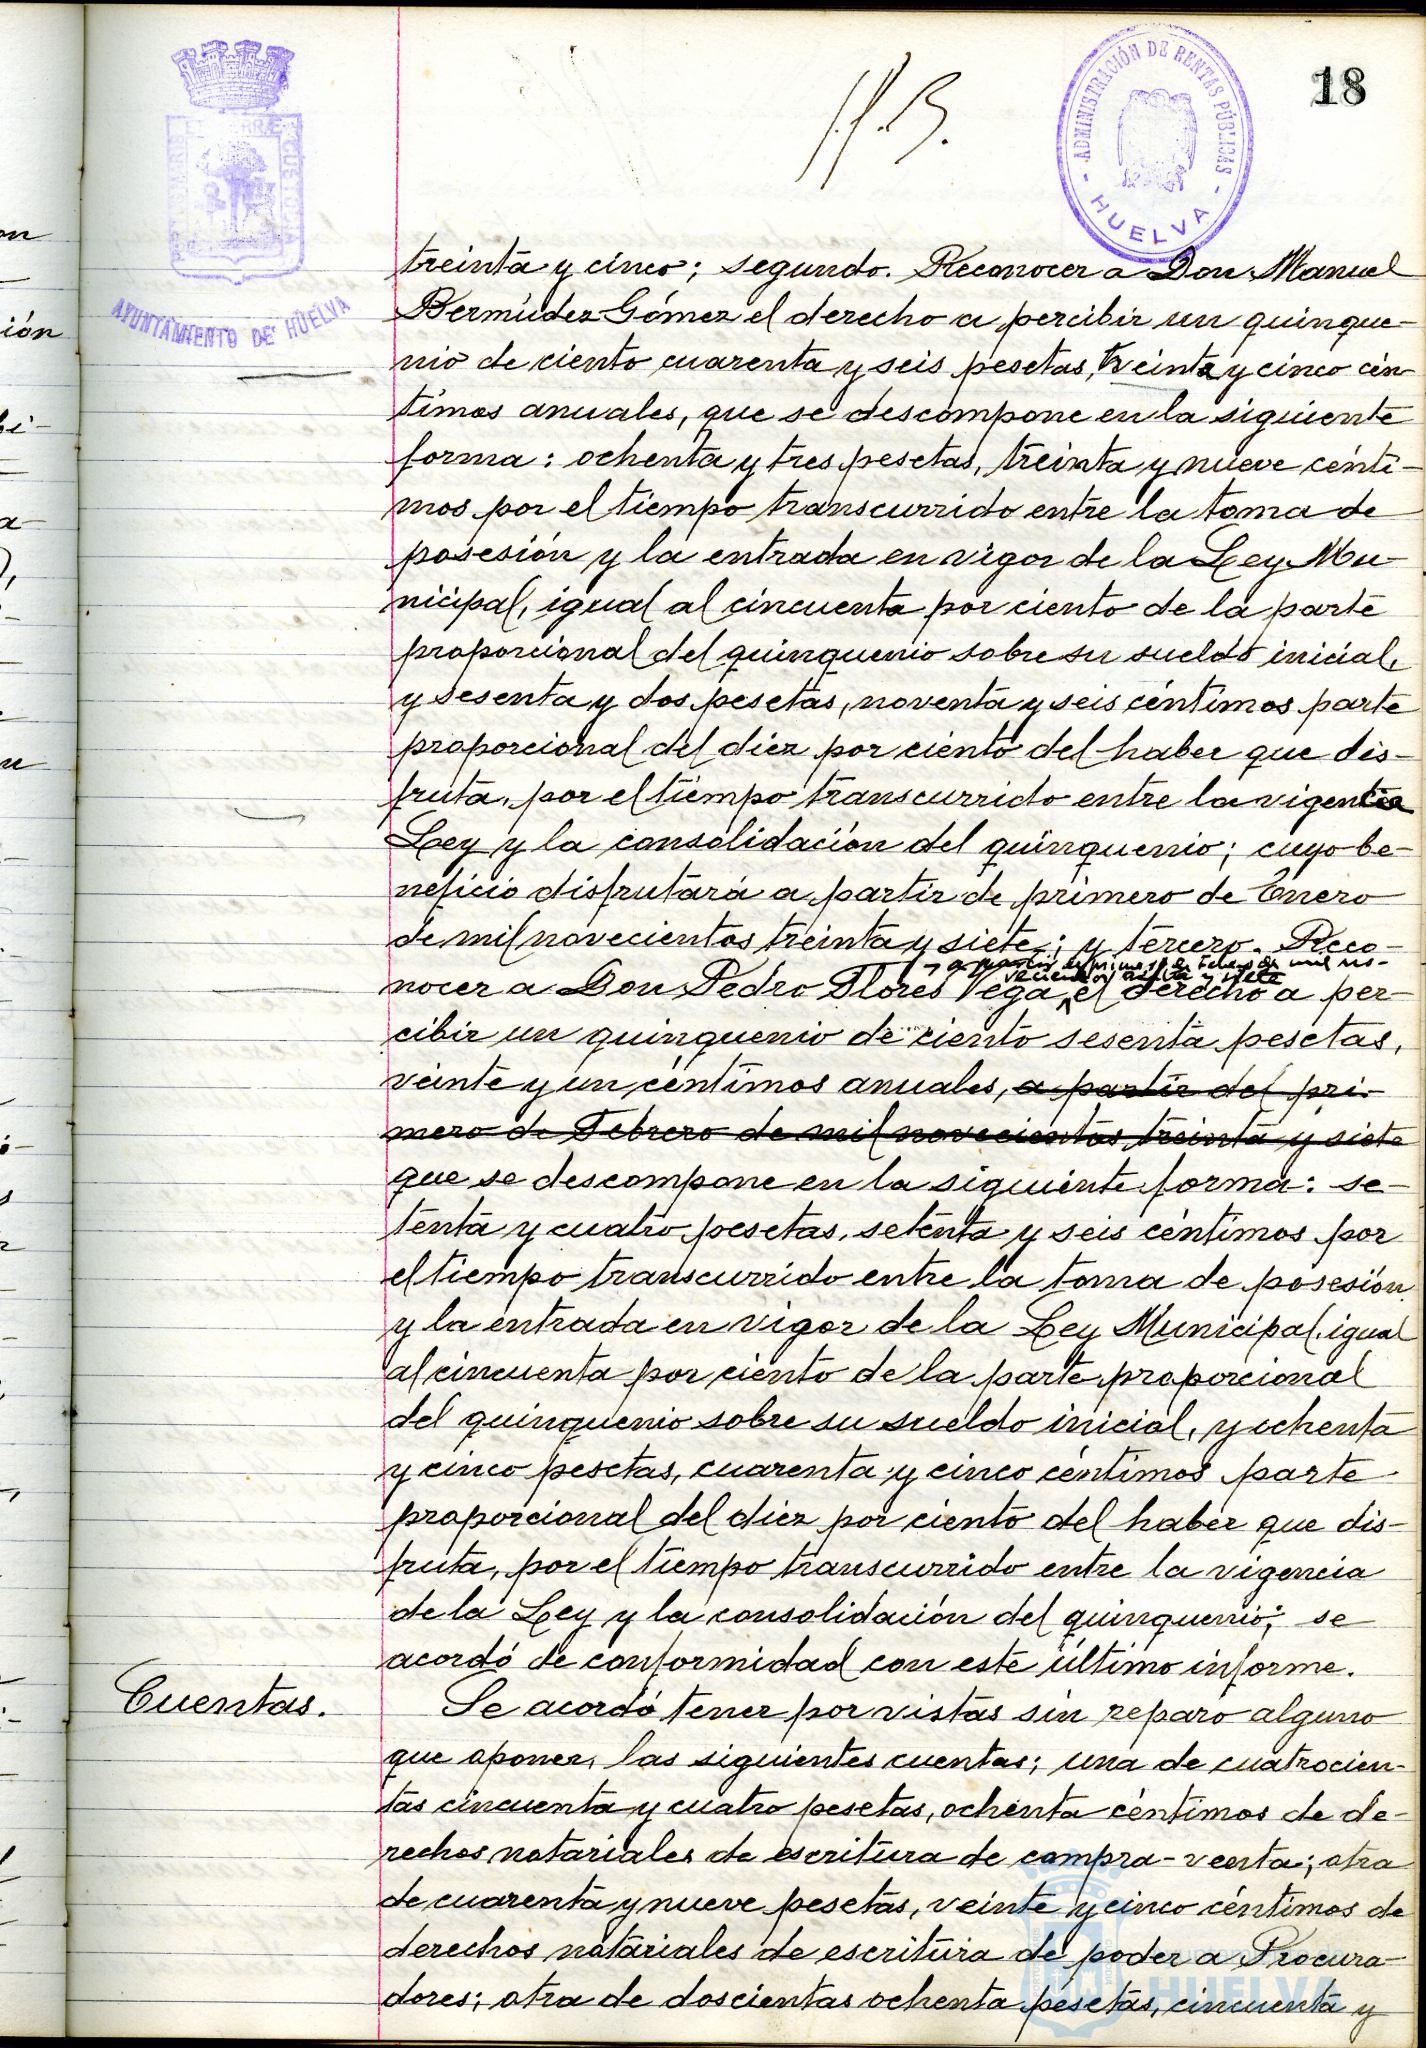 18
ADMINISTRACIÓN DE RENTAS PÚBLICAS
HUELVA
AYUNTAMIENTO DE HUELVA
treinta y cinco; segundo. Reconocer a Don Manuel
Bermúdez Gómez el derecho a percibir un quinque-
nio de ciento cuarenta y seis pesetas, treinta y cinco cén
timos anuales, que se descompone en la siguiente
forma: ochenta y tres pesetas, treinta y nueve cénti-
mos por el tiempo transcurrido entre la toma de
posesión y la entrada en vigor de la Ley Mu-
nicipal, igual al cincuenta por ciento de la parte
proporcional del quinquenio sobre su sueldo inicial,
y sesenta y dos pesetas, noventa y seis céntimos parte
proporcional del diez por ciento del haber que dis-
fruta, por el tiempo transcurrido entre la vigencia
Ley y la consolidación del quinquenio; cuyo be-
neficio disfrutará a partir de primero de Enero
de mil novecientos treinta y siete; y tercero. Reco-
, a partir de primero de Febrero de mil no-
vecientos treinta y siete
nocer a Don Pedro Flores Vega, el derecho a per-
cibir un quinquenio de ciento sesenta pesetas,
veinte y un céntimos anuales, a partir del pri-
mero de Febrero de mil novecientos treinta y siete
que se descompone en la siguiente forma: se-
tenta y cuatro pesetas, setenta y seis céntimos por
el tiempo transcurrido entre la toma de posesión
y la entrada en vigor de la Ley Municipal, igual
al cincuenta por ciento de la parte proporcional
del quinquenio sobre su sueldo inicial, y ochenta
y cinco pesetas, cuarenta y cinco céntimos parte
proporcional del diez por ciento del haber que dis-
fruta, por el tiempo transcurrido entre la vigencia
de la Ley y la consolidación del quinquenio; se
acordó de conformidad con este último informe.
Cuentas.
Se acordó tener por vistas sin reparo alguno
que oponer, las siguientes cuentas; una de cuatrocien-
tas cincuenta y cuatro pesetas, ochenta céntimos de de-
rechos notariales de escritura de compra-venta; otra
de cuarenta y nueve pesetas, veinte y cinco céntimos de
derechos notariales de escritura de poder a Procura-
dores; otra de doscientas ochenta pesetas, cincuenta y
HUELVA